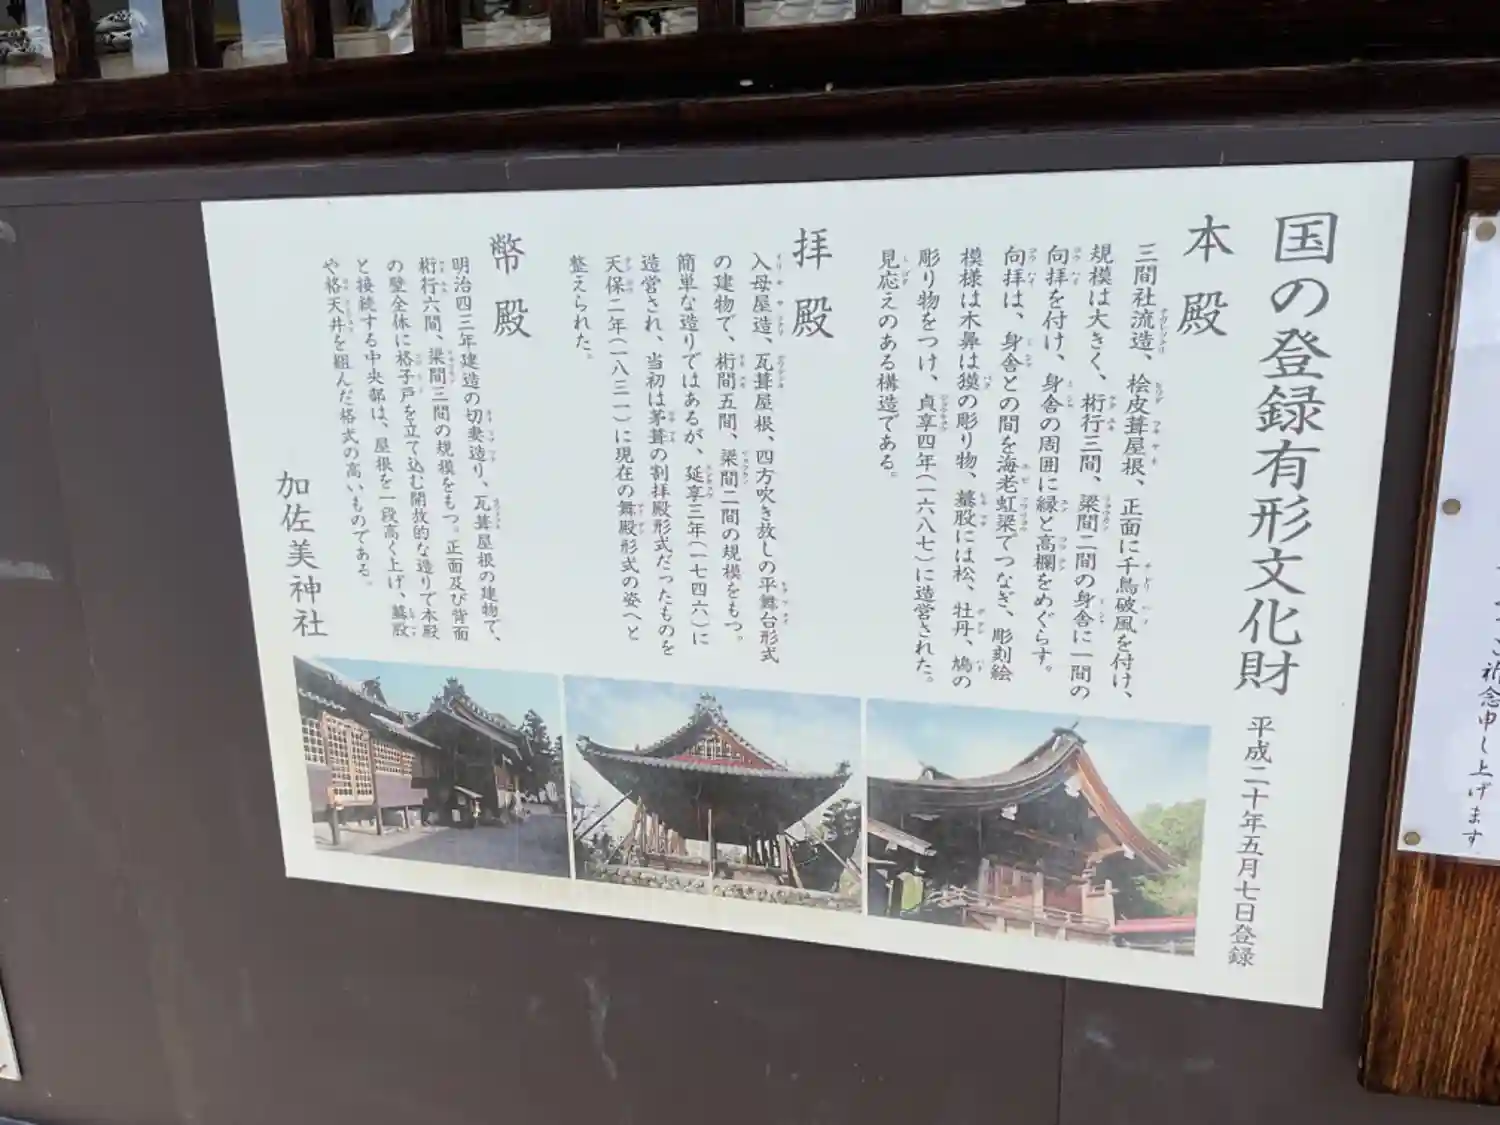 国の登録有形文化財 平成二十年五月七日登録
本殿
三間社流造、桧皮葺屋根、正面に千鳥破風を付け、
規模は大きく、桁行三間、梁間二間の身舎に一間の
向拝を付け、身舎の周囲に縁と高欄をめぐらす。
向拝は、身舎との間を海老虹梁でつなぎ、彫刻絵
模様は木鼻は獏の彫り物、蟇股には松、牡丹、鳩の
彫り物をつけ、貞享四年(一六八七)に造営された。
見応えのある構造である。
拝殿
入母屋造、瓦葺屋根、四方吹き放しの平舞台形式
の建物で、桁間五間、梁間二間の規模をもつ。
簡単な造りではあるが、延享三年(一七四六)に
造営され、当初は茅葺の割拝殿形式だったものを
天保二年(一八三一)に現在の舞殿形式の姿へと
整えられた。
幣殿
明治四三年建造の切妻造り、瓦葺屋根の建物で、
桁行六間、梁間三間の規模をもつ。正面及び背面
の壁全体に格子戸を立て込む開放的な造りで本殿
と接続する中央部は、屋根を一段高く上げ、蟇股
や格天井を組んだ格式の高いものである。
加佐美神社
ご祈念申し上げます